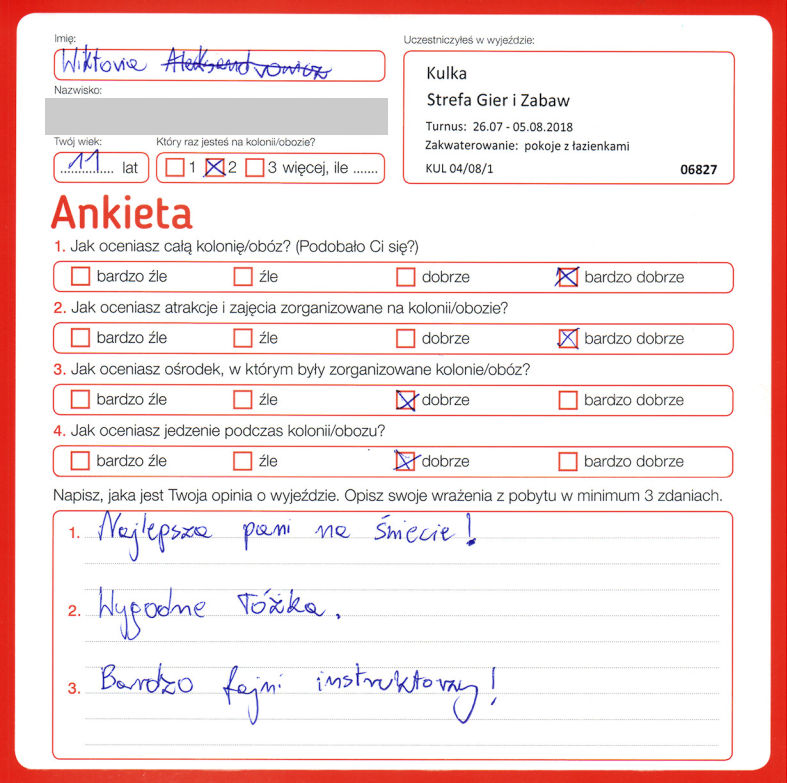 Imię:
Uczestniczyłeś w wyjeździe:
Wiktoria Aleksandrowicz
Kulka
Strefa Gier i Zabaw
Nazwisko:
Turnus: 26.07 - 05.08.2018
Zakwaterowanie: pokoje z łazienkami
KUL 04/08/1 06827
Twój wiek: Który raz jesteś na kolonii/obozie?
11 lat 1 2 3 więcej, ile .......
Ankieta
1. Jak oceniasz całą kolonię/obóz? (Podobało Ci się?)
bardzo źle źle dobrze bardzo dobrze
2. Jak oceniasz atrakcje i zajęcia zorganizowane na kolonii/obozie?
bardzo źle źle dobrze bardzo dobrze
3. Jak oceniasz ośrodek, w którym były zorganizowane kolonie/obóz?
bardzo źle źle dobrze bardzo dobrze
4. Jak oceniasz jedzenie podczas kolonii/obozu?
bardzo źle źle dobrze bardzo dobrze
Napisz, jaka jest Twoja opinia o wyjeździe. Opisz swoje wrażenia z pobytu w minimum 3 zdaniach.
1. Najlepsza pani na śmiecie!
2. Wygodne łóżka.
3. Bardzo fajni instruktorzy!